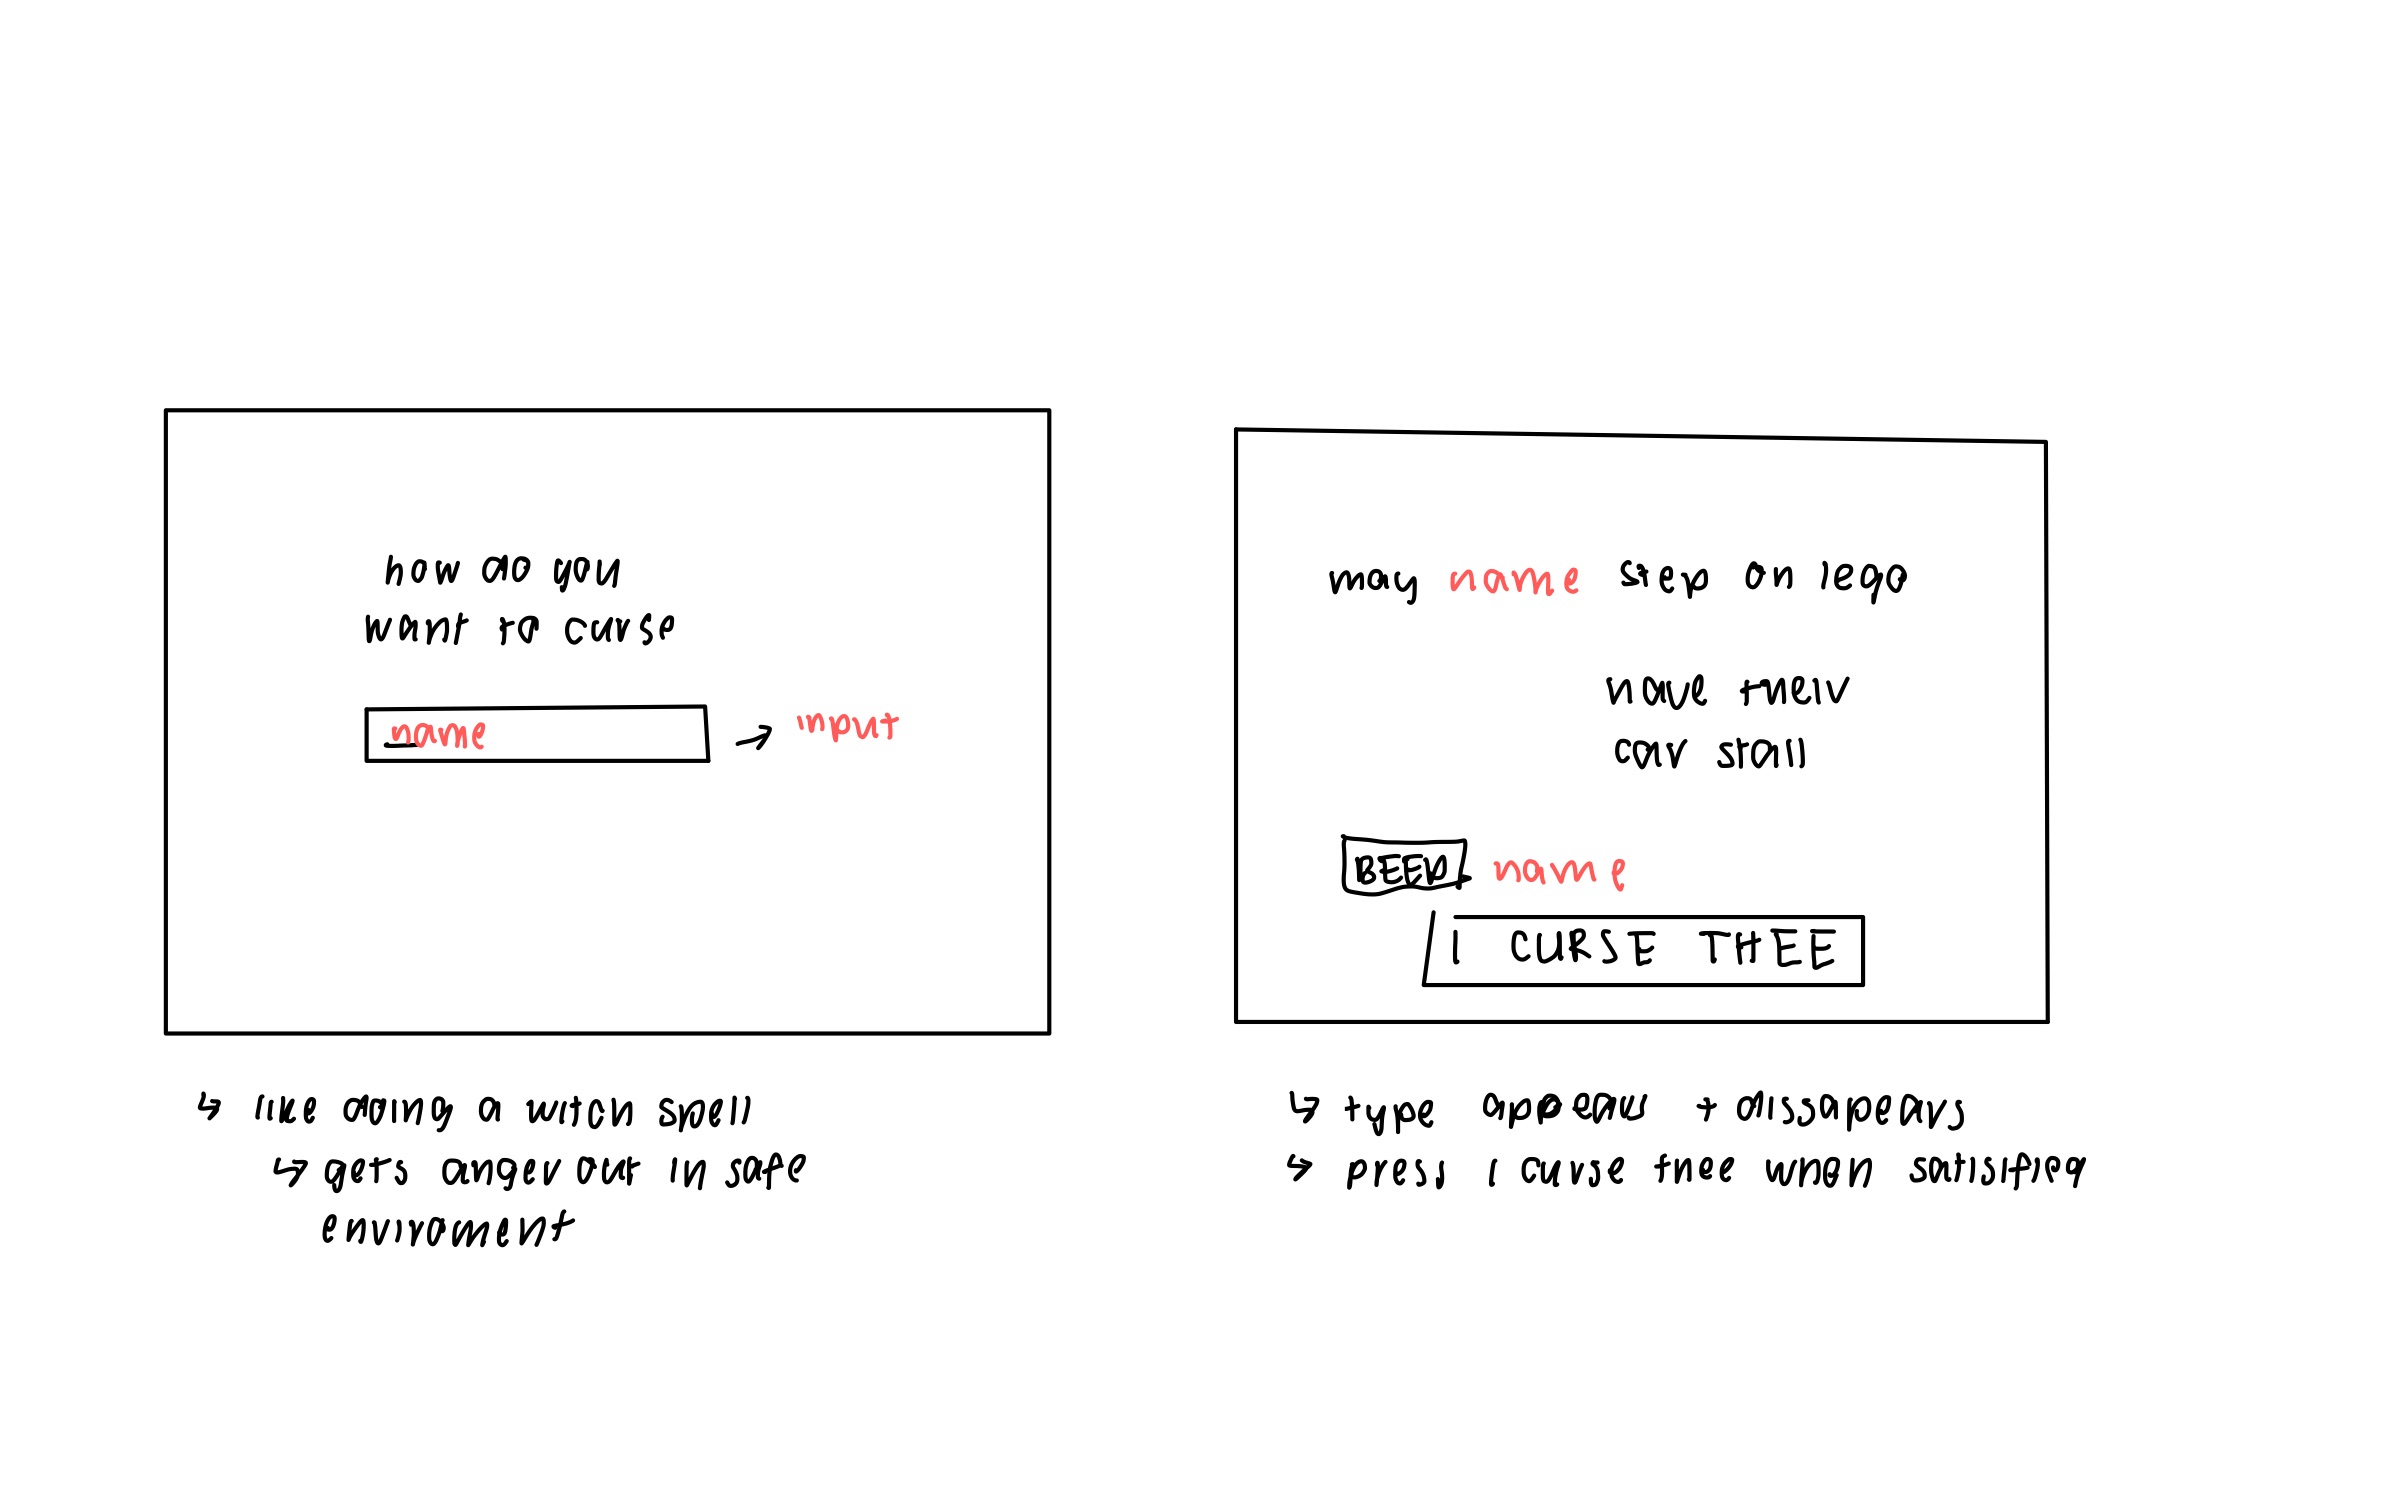 how do you
want to curse
name → input
↳ like doing a witch spell
↳ gets anger out in safe
enviroment
may name step on lego
have their
car stall
name
I CURSE THEE
↳ type appears + dissapears
↳ press i curse thee when satisified